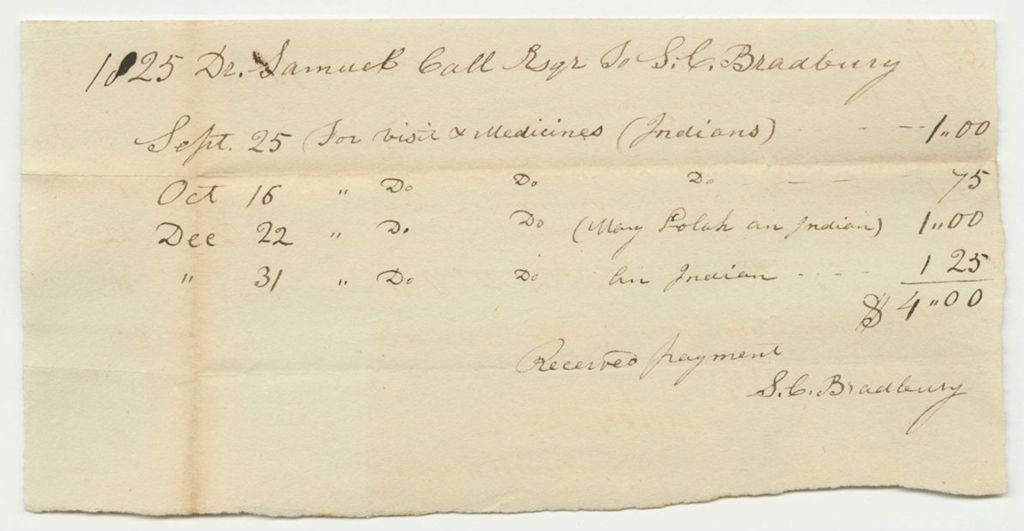 1825 Dr. Samuel Call Esqr To S. C. Bradbury
Sept. 25 For visit & Medicines (Indians) - - - 1"00
Oct 16 " Do Do Do - - 75
Dec 22 " Do Do (Mary Polah an Indian) 1"00
" 31 " Do Do An Indian - - - - 1 25
$ 4"00
Received payment
S. C. Bradbury